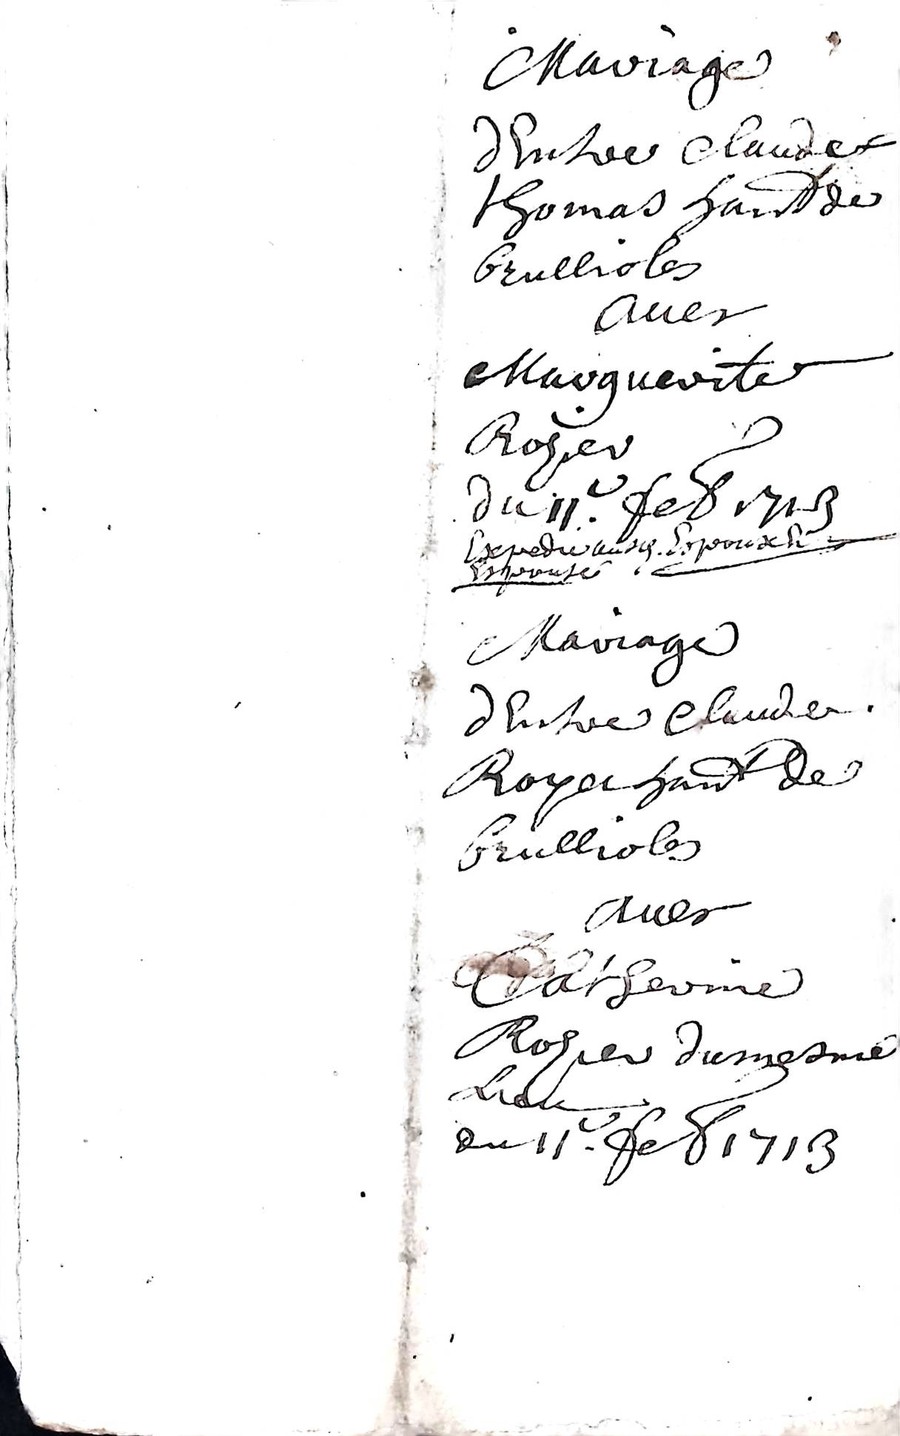 Mariage
d'Entre Claude
thomas hant de
brullioles
auec
Marguerite
Rogier
du 11e. feb 1713
Expedié aud. Espoux &
Espouse
Mariage
d'Entre Claude
Royer hant de
brullioles
auec
Catherine
Rogier du mesme
Lieu
du 11e. feb 1713